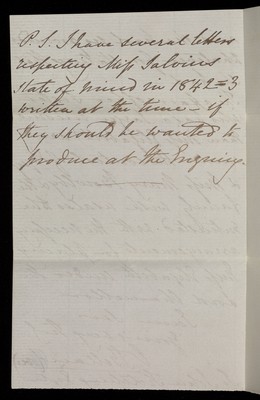 P.S. I have several letters
respecting Miss Jalvins
State of mind in 1842=3
written at the time – if
they should be wanted to
produce at the Enquiry.